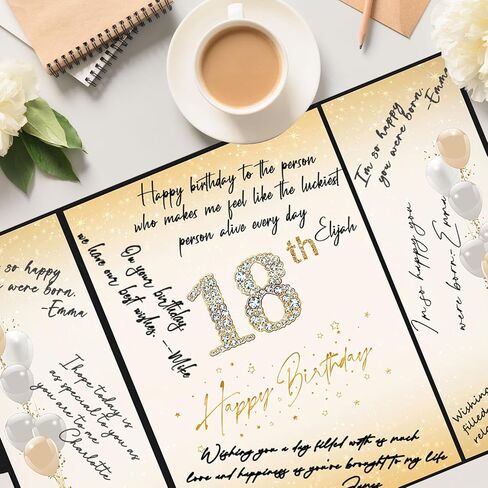 Happy birthday to the person
who makes me feel like the luckiest
person alive every day
Elijah
On your birthday,
we have our best wishes. —Mike
18th
Happy Birthday
Wishing you a day filled with as much
love and happiness as you've brought to my life
James
so happy
were born.
-Emma
I hope today is
as special to you as
you are to me
Charlotte
I'm so happy
you were born.
-Emma
I'm so happy you
were born-Emma
Wishing
filled